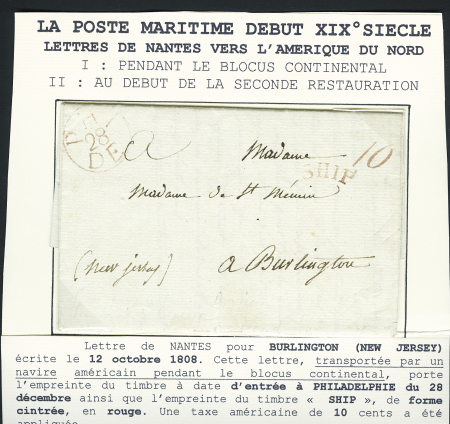 LA POSTE MARITIME DEBUT XIX°SIECLE
LETTRES DE NANTES VERS L'AMERIQUE DU NORD
I : PENDANT LE BLOCUS CONTINENTAL
II : AU DEBUT DE LA SECONDE RESTAURATION
28
DE
a Madame 10
SHIP
Madame de St Mémin
(new jersey) a Burlington
Lettre de NANTES pour BURLINGTON (NEW JERSEY)
écrite le 12 octobre 1808. Cette lettre, transportée par un
navire américain pendant le blocus continental, porte
l'empreinte du timbre à date d'entrée à PHILADELPHIE du 28
décembre ainsi que l'empreinte du timbre « SHIP », de forme
cintrée, en rouge. Une taxe américaine de 10 cents a été